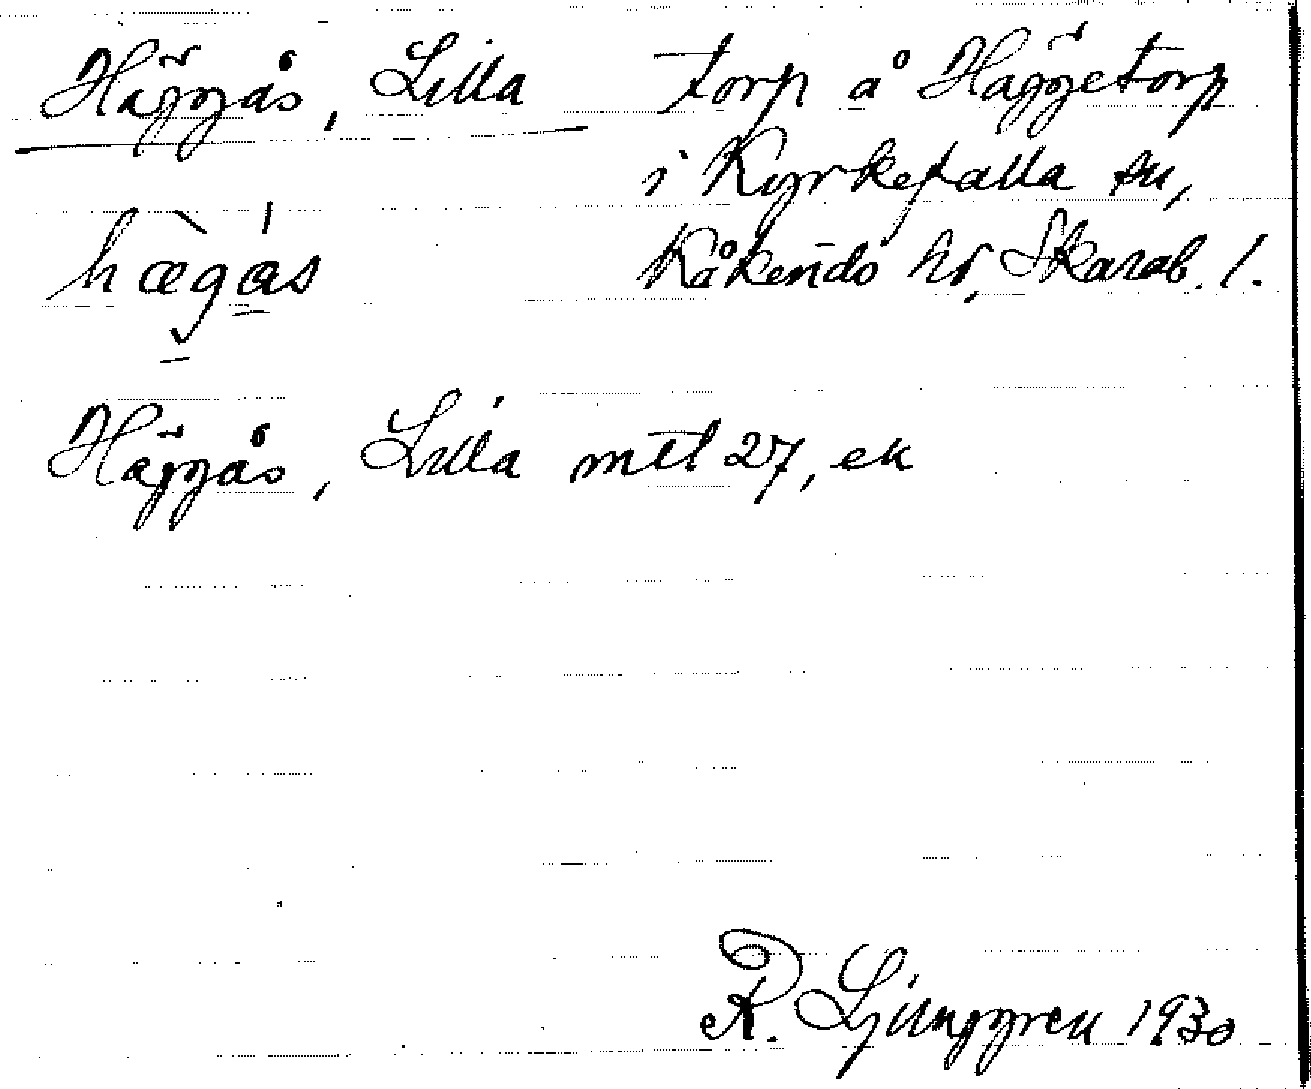 Häggås, Lilla
torp å Häggetorp
i Kyrkefalla sn,
Kåkinds hd, Skarab. l.
hæ̀gá̱s
Häggås, Lilla mtl 27, ek
R. Ljunggren 1930